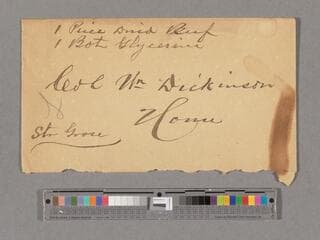 1 Piece Dried Beef
1 Bot Glycerine
Col Wm Dickinson
Home
Str Grose